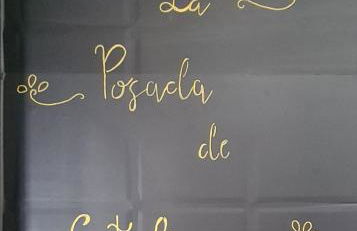 La
Posada
de